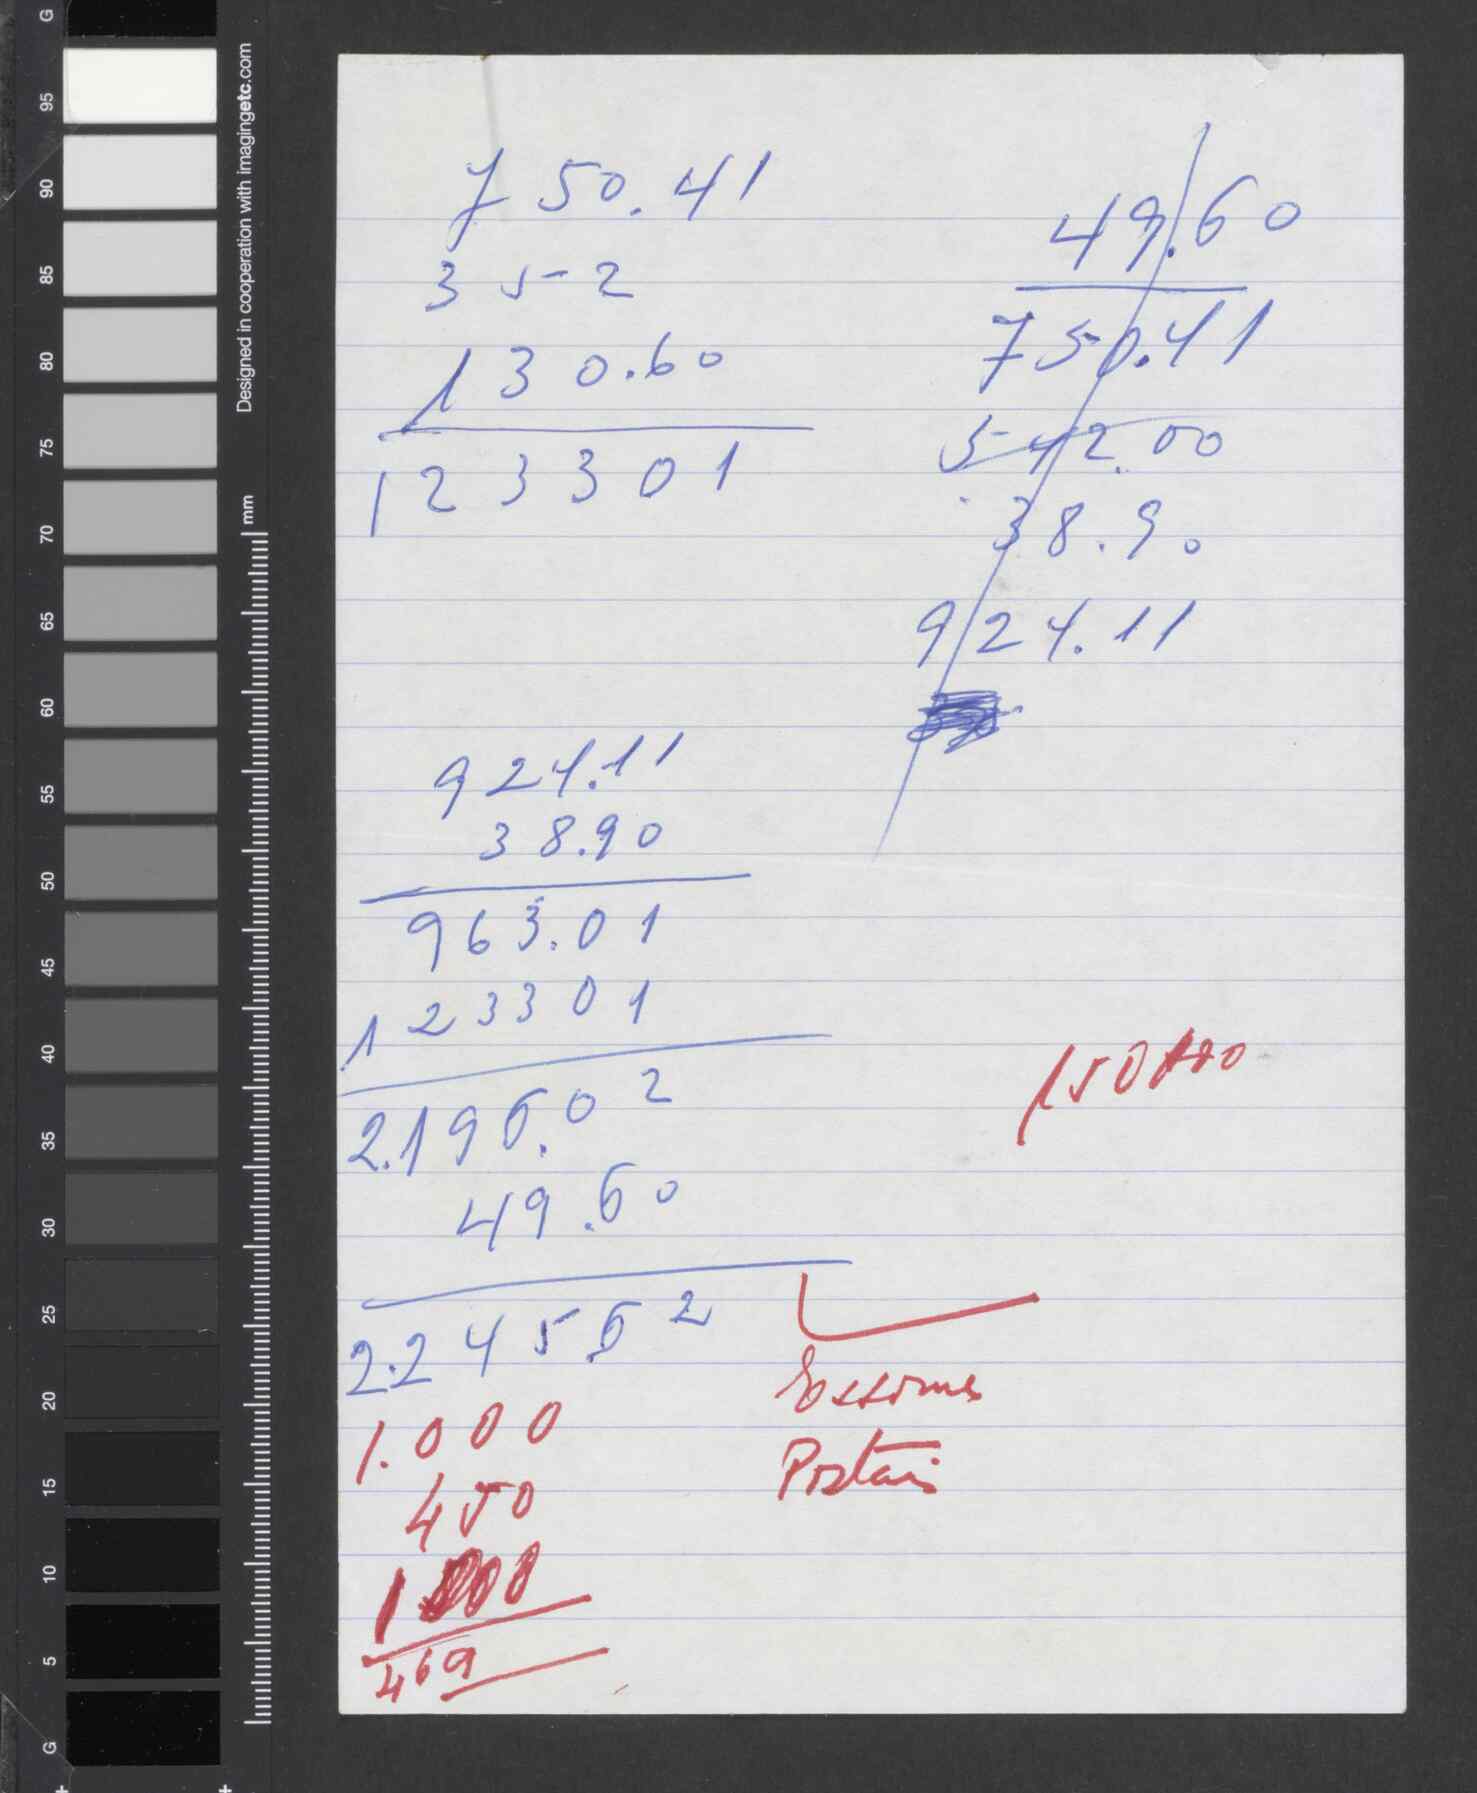 750.41
352
130.60
123301
49.60
750.41
542.00
38.90
924.11
924.11
38.90
963.01
123301
2.196.02
49.60
2.245.62
1.000
450
469
150
Postais
Designed in cooperation with imagingetc.com
mm
G
95
90
85
80
75
70
65
60
55
50
45
40
35
30
25
20
15
10
5
G